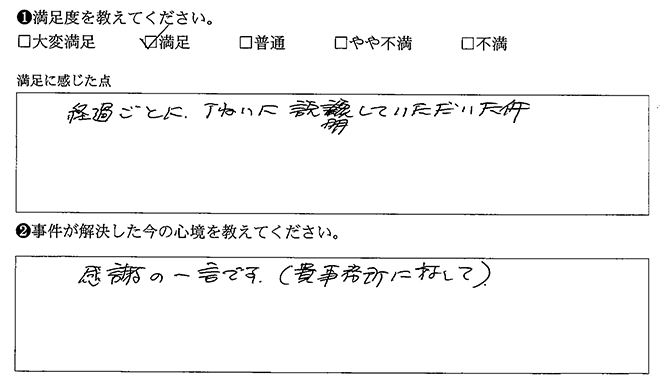 ❶満足度を教えてください。
□大変満足 ☑満足 □普通 □やや不満 □不満
満足に感じた点
経過ごとに、丁ねいに説明していただいた件
❷事件が解決した今の心境を教えてください。
感謝の一言です。(貴事務所に対して)。